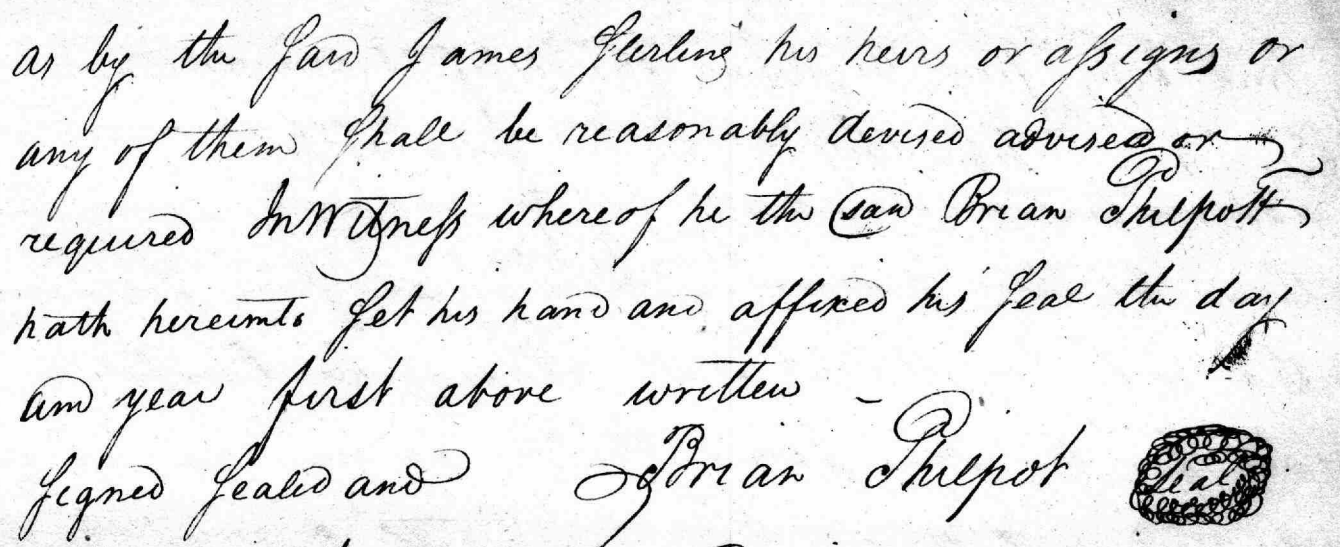 as by the said James Sterling his heirs or assigns or
any of them shall be reasonably devised advised or
required In Witness whereof he the said Brian Philpott
hath hereunto set his hand and affixed his seal the day
and year first above written -
Signed Sealed and Brian Philpot Seal